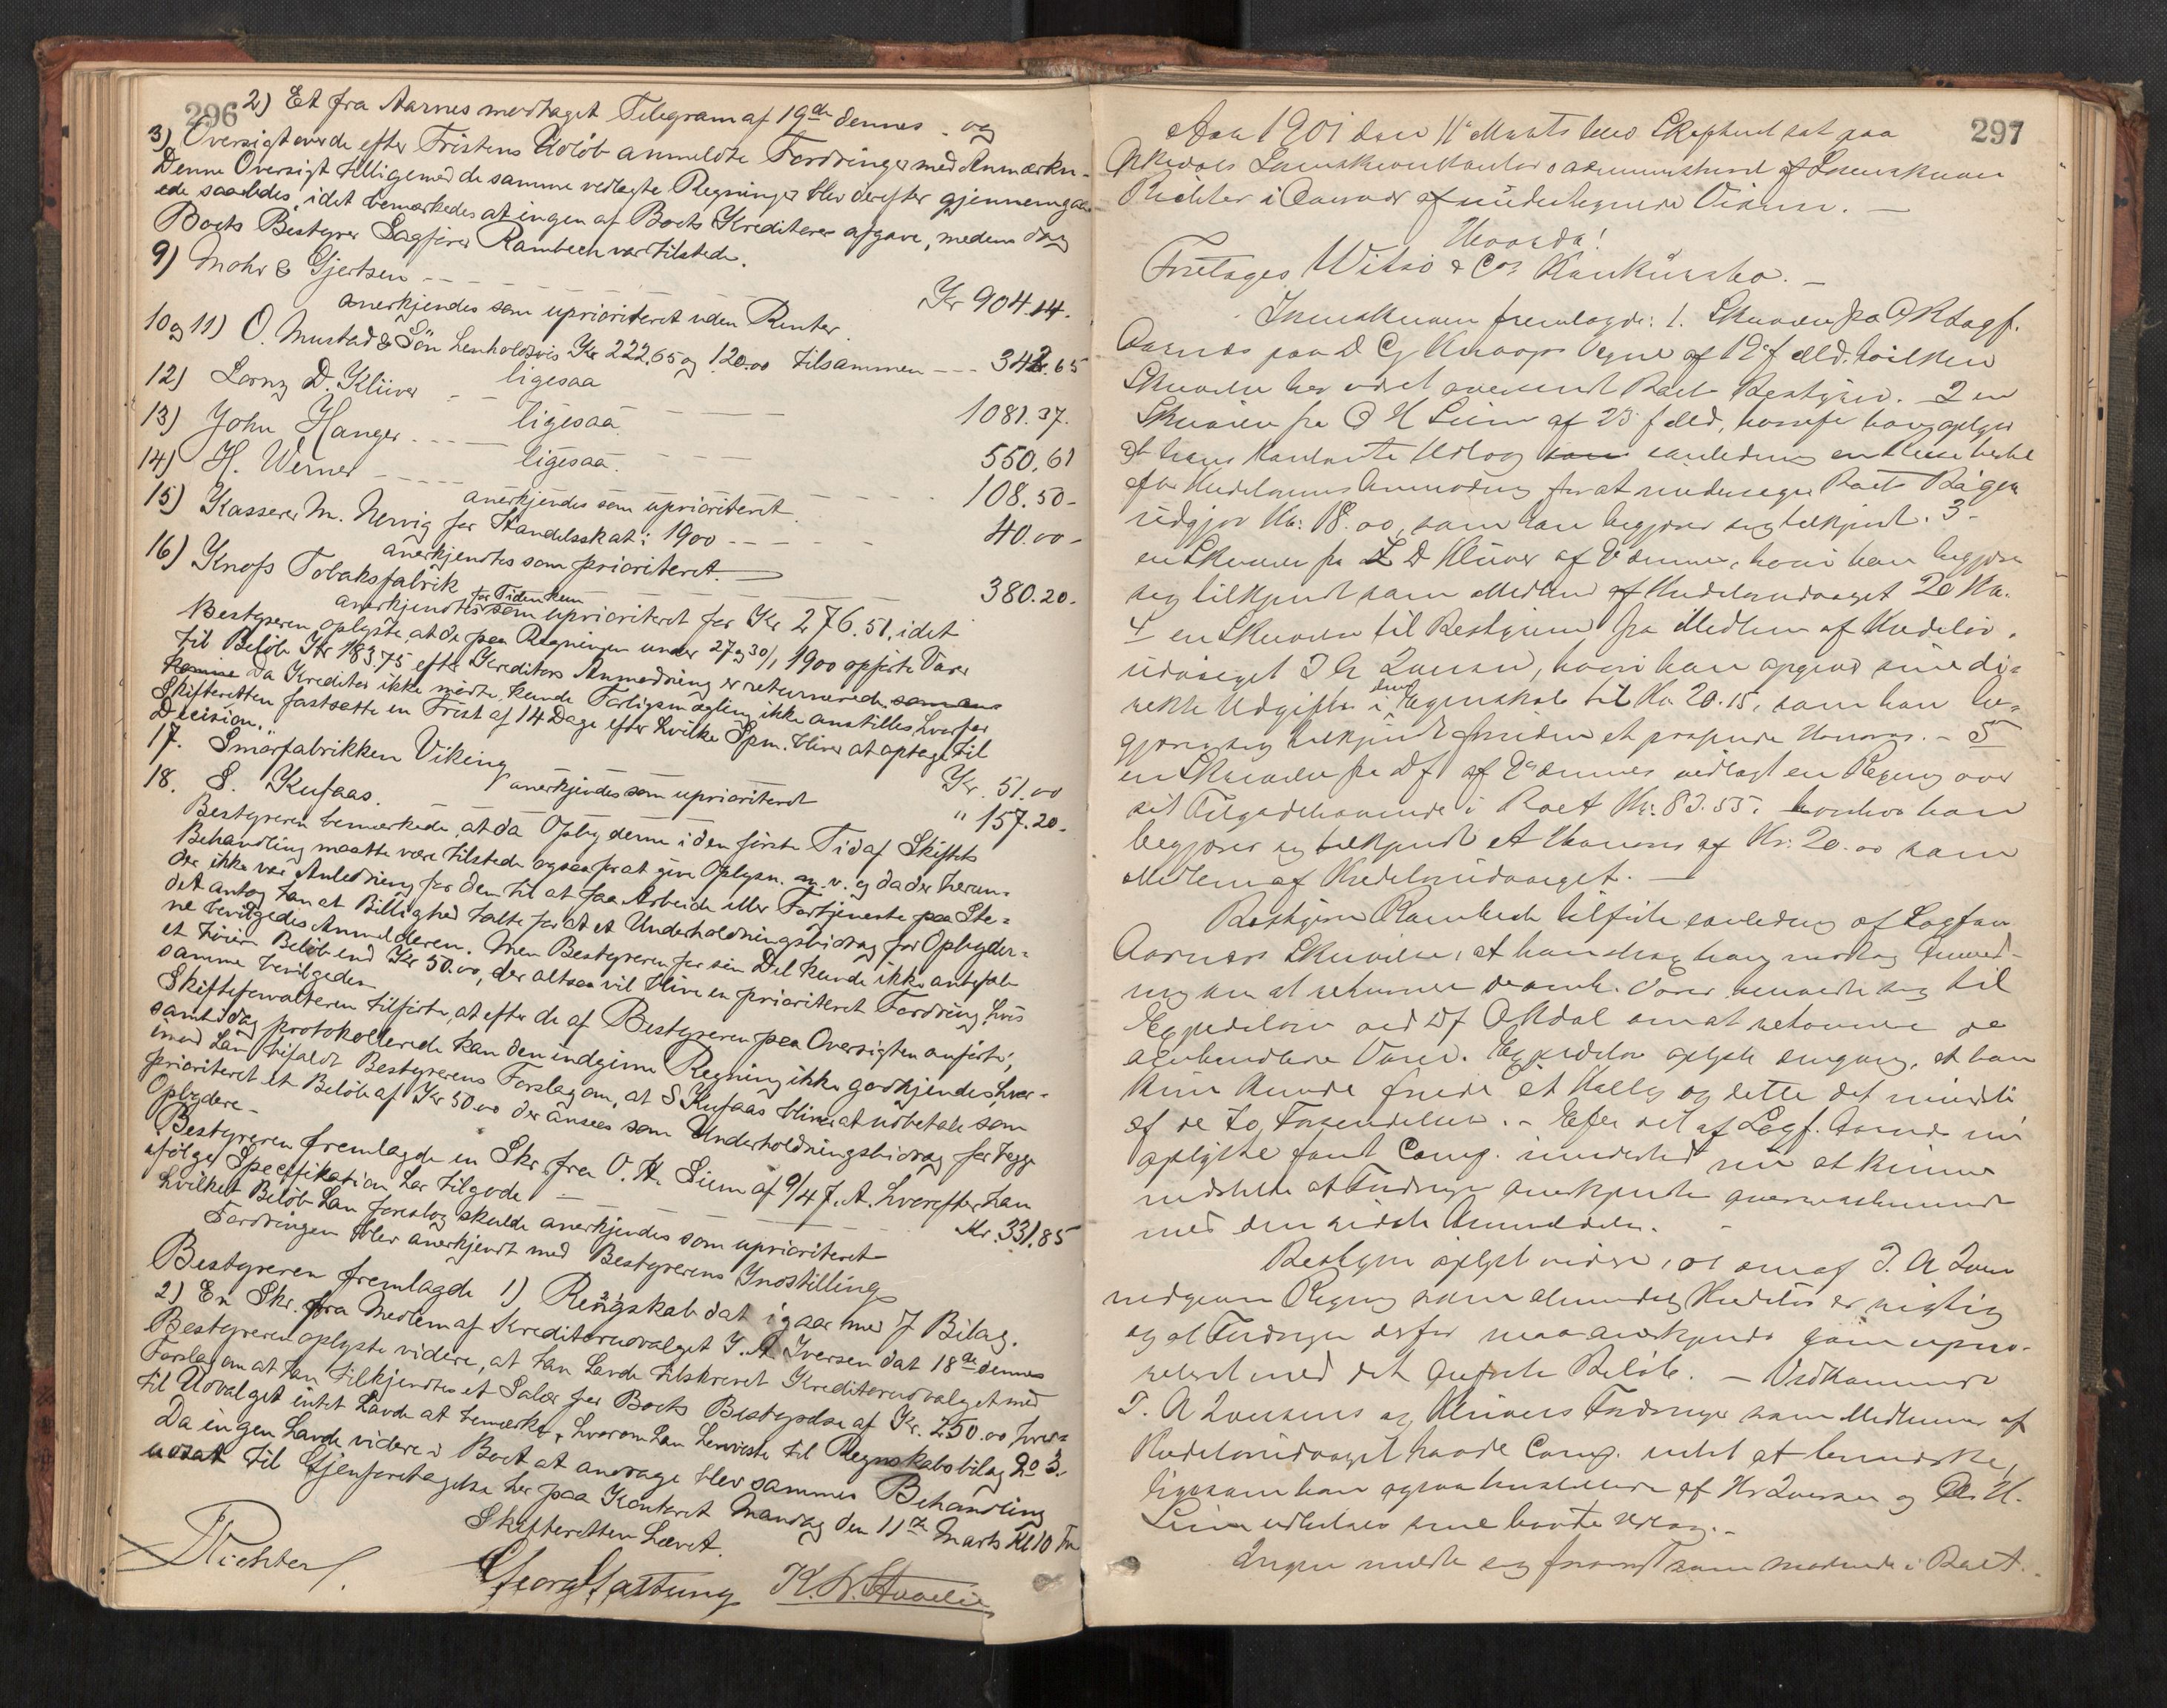 296
2) Et fra Aarnes modtaget Telegram af 19de dennes - og
3) Oversigt over de efter Fristens Udløb anmeldte Fordringer med Anmærkn-
Denne Oversigt tilligemed de samme vedlagte Regninger blev derefter gjennemgaa-
ede saaledes, idet bemærkedes at ingen af Boets Kreditorer afgave, medens dog
Boets Bestyrer Sagfører Rambech var tilstede.
9) Mohr & Gjertsen - - - Kr 904.14.
anerkjendes som uprioriteret uden Renter.
10 og 11) O. Mustad & Søn henholdsvis Kr 222.65 og 120.00 tilsammen - - - 342.65
ligesaa
12) Lorny D. Klüver - - - 1081.37.
ligesaa
13) John Hanger - - - 550.61
ligesaa.
14) H. Werner - - - 108.50-
anerkjendes som uprioriteret.
15) Kasserer M. Nervig for Handelsskat i 1900 - - - 40.00-
anerkjendtes som prioriteret.
16) Knofs Tobaksfabrik - - - 380.20.
for Tiden kun
anerkjendtes som uprioriteret for Kr 276.51, idet
Bestyreren oplyste, at de paa Regningen under 27 og 30/1 1900 opførte Varer
til Beløb Kr 183.75 efter Kreditors Anmodning er returnerede
Da Kreditor ikke mødte kunde Forligsmægling ikke anstilles, hvorfor
Skifteretten fastsatte en Frist af 14 Dage efter hvilke Spm. bliver at optage til
Decision.
17. Smørfabrikken Viking Kr. 51.00
anerkjendes som uprioriteret
18. S. Kufaas. " 157.20.
Bestyreren bemærkede, at da Opbyderne i den første Tid af Skiftets
Behandling maatte være tilstede ogsaa for at give Oplysn. m. v. og da der herun-
der ikke var Anledning for dem til at faa Arbeide eller Fortjeneste paa Ste-
det antog han at Billighed talte for at et Underholdningsbidrag for Opbyder-
ne bevilgedes Anmelderen. Men Bestyreren for sin Del kunde ikke anbefale
et høiere Beløb end Kr 50.00, der altsaa vil blive en prioriteret Fordring, hvis
samme bevilgedes
Skifteforvalteren tilførte, at efter de af Bestyreren paa Oversigten anførte,
samt idag protokollerede kan den indgivne Regning ikke godkjendes, hvor-
imod han bifaldt Bestyrerens Forslag om, at S Kufaas bliver at udbetale som
prioriteret et Beløb af Kr 50.00 der ansees som Underholdningsbidrag for begge
Opbydere -
Bestyreren fremlagde en Skr. fra O. H. Siem af 9/4 f. A. hvorefter han
ifølge Specifikation har tilgode - - - Kr. 331.85
hvilket Beløb han foreslog skulde anerkjendes som uprioriteret
Fordringen blev anerkjendt med Bestyrerens Indstilling
Bestyreren fremlagde 1) Regnskab dat igaar med 7 Bilag.
2) En Skr. fra Medlem af Kreditorudvalget J. A. Iversen dat 18de dennes
Bestyreren oplyste videre, at han havde tilskrevet Kreditorudvalget med
Forslag om at han tilkjendtes et Salær for Boets Bestyrelse af Kr. 250.00 hvor-
til Udvalget intet havde at bemærke, hvorom han henviste til Regnskabsbilag No 3.
Da ingen havde videre i Boet at andrage blev sammes Behandling
udsat til Gjenforetagelse her paa Kontoret Mandag den 11te Marts Kl 10 Fm
Skifteretten hævet.
Richter.
Georg Hattung K. N. Hvaslie

297
Aar 1901 den 11te Marts blev Skifteret sat paa
Orkedals Sorenskriverkontor administreret af Sorenskriver
Richter i Overvær af undertegnede Vidner. -
Hvorda!
Foretages Witsø & Co's Konkursbo. -
Sorenskriveren fremlagde: 1. Skrivelse fra ORsagf.
Aarnes paa D Cj Knoops Vegne af 19 f Md. hvilken
Skrivelse har været oversendt Boets Bestyrer. 2 en
Skrivelse fra O H Siem af 25 f Md, hvorefter han oplyser
at hans kontante Udlæg i anledning en Reise
efter Kreditorernes Anmodning for at undersøge Boets Bøger
udgjør Kr: 18.00, som han begjærer sig tilkjendt. 3-
en Skrivelse fra L D Klüver af dennes, hvori han begjærer
sig tilkjendt som Medlem af Kreditorudvalget 20 Kr.
4 en Skrivelse til Bestyreren fra Medlem af Kreditor-
udvalget J A Iversen, hvori han opgiver sine di-
rekte Udgifter i den Egenskab til Kr. 20.15, som han be-
gjærer sig tilkjendt foruden et passende Honorar. - 5
en Skrivelse fra af dennes vedlagt en Regning over
sit Tilgodehavende i Boet Kr. 83.55. hvorhos han
begjærer sig tilkjendt et Honorar af Kr: 20.00 som
Medlem af Kreditorudvalget. -
Bestyrer Rambech tilførte i anledning af Sagfør
Aarnes's Skrivelse, at han strax han modtog Anmod-
ning om at returnere de omh. Varer henvendte sig til
Expeditøren ved D/S Orkdal om at returnere de
Varer. Expeditør oplyste engang, at han
kun kunde finde et Kolly og dette det mindste
af de to Forsendelser. - Efter det af Sagf. Aarnes nu
oplyste fandt Comp. imidlertid nu at kunne
indstille at Fordringen anerkjendes overensstemmende
med den sidste Anmeldelse. -
Bestyreren oplyste videre, at den af J. A Iversen
indgivne Regning som almindelig Kreditor er rigtig
og at Fordringen derfor maa anerkjendes som uprio-
riteret med det anførte Beløb. - Vedkommende
J. A Iversens og Klüvers Fordringer som Medlemmer af
Kreditorudvalget havde Comp. intet at bemærke,
ligesom han ogsaa af Hr Iversen og O. H.
Siem udbetales sine havte Udlæg. -
Ingen meldte sig forøvrigt som mødende i Boet.